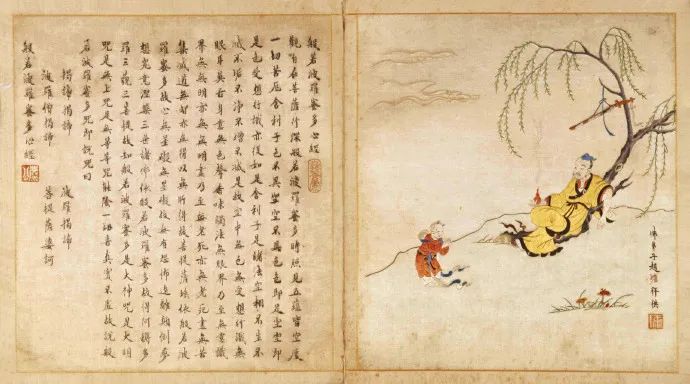 般若波羅蜜多心經
觀自在菩薩行深般若波羅蜜多時照見五蘊皆空度
一切苦厄舍利子色不異空空不異色色即是空空即
是色受想行識亦復如是舍利子是諸法空相不生不
滅不垢不淨不增不減是故空中無色無受想行識無
眼耳鼻舌身意無色聲香味觸法無眼界乃至無意識
界無無明亦無無明盡乃至無老死亦無老死盡無苦
集滅道無智亦無得以無所得故菩提薩埵依般若波
羅蜜多故心無罣礙無罣礙故無有恐怖遠離顛倒夢
想究竟涅槃三世諸佛依般若波羅蜜多故得阿耨多
羅三藐三菩提故知般若波羅蜜多是大神咒是大明
咒是無上咒是無等等咒能除一切苦真實不虛故說般
若波羅蜜多咒即說咒曰
揭諦揭諦 波羅揭諦
波羅僧揭諦 菩提薩婆訶
般若波羅蜜多心經
弟子趙雍拜供